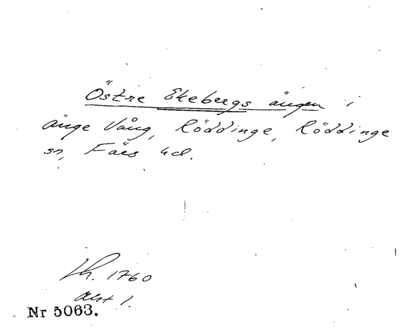 Östre Ekebergs ängen i
änge Vång, Röddinge, Röddinge
sn, Färs hd.
Lh. 1760
akt 1.
Nr 5063.